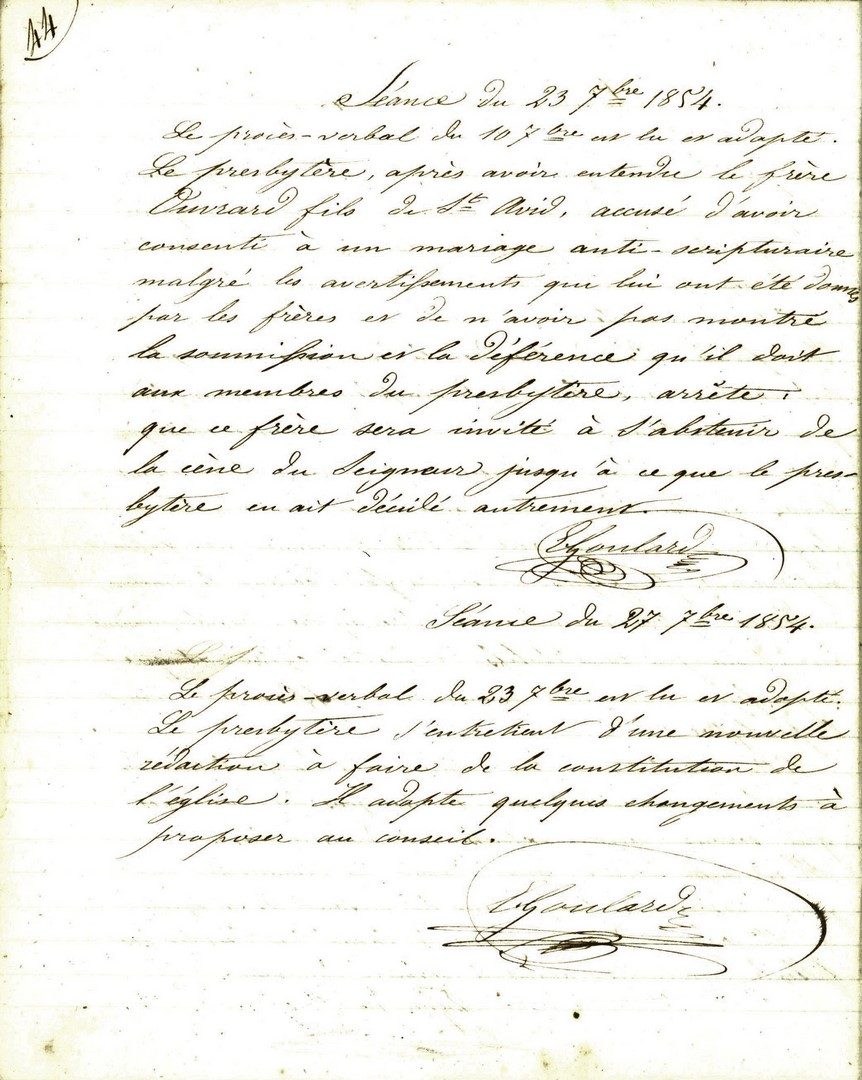 44
Séance du 23 7bre 1854.
Le procès-verbal du 10 7bre est lu et adopté.
Le presbytère, après avoir entendu le frère
Ouvrard fils de St Avid, accusé d'avoir
consenti à un mariage anti-scripturaire
malgré les avertissements qui lui ont été donnés
par les frères et de n'avoir pas montré
la soumission et la déférence qu'il doit
aux membres du presbytère, arrête:
que ce frère sera invité à s'abstenir de
la cène du Seigneur jusqu'à ce que le pres-
bytère en ait décidé autrement.
EGoulard
Séance du 27 7bre 1854.
Le procès-verbal du 23 7bre est lu et adopté.
Le presbytère s'entretient d'une nouvelle
rédaction à faire de la constitution de
l'église. Il adopte quelques changements à
proposer au conseil.
EGoulard